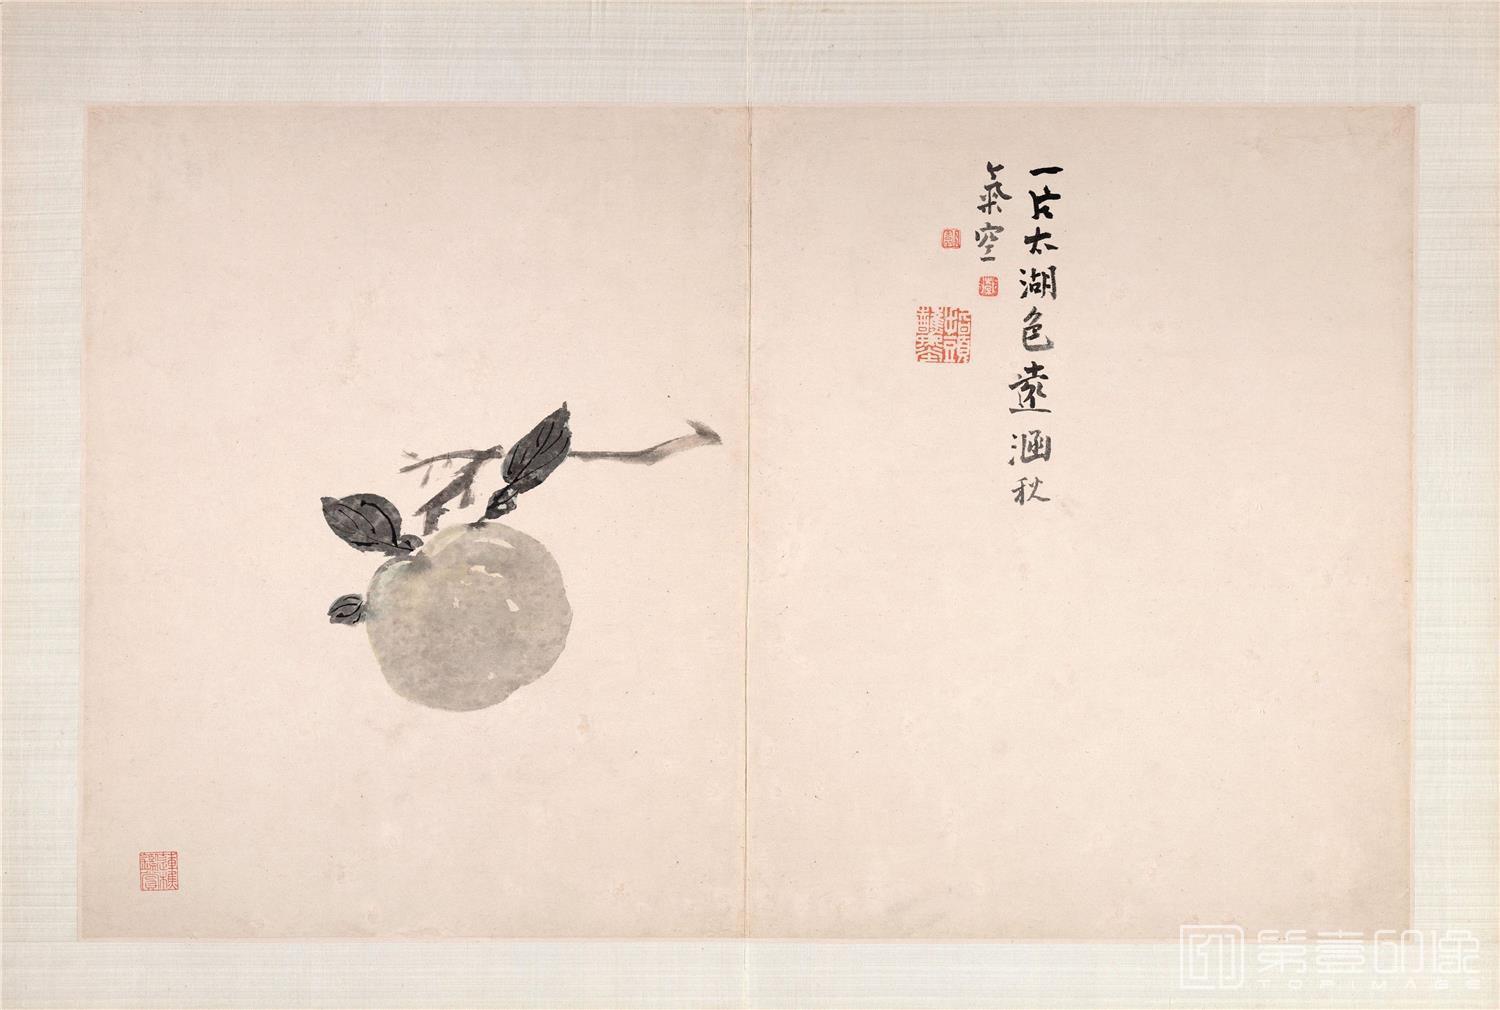 一片太湖色遠涵秋
氣空
第壹印像
TOPIMAGE